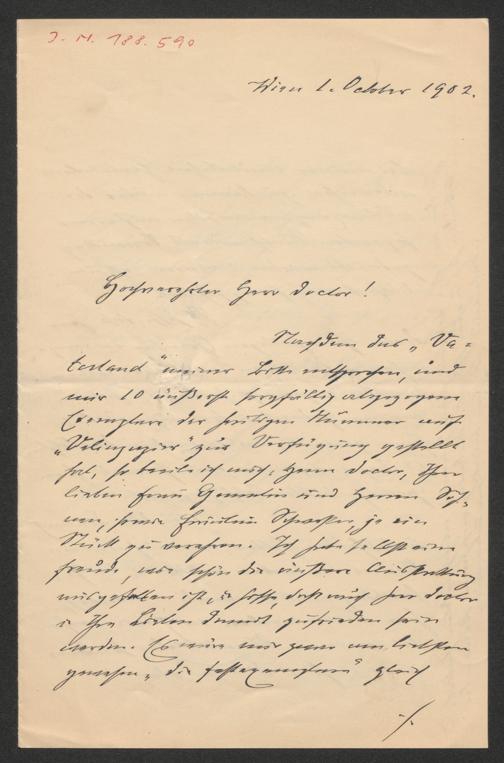 J. N. 188.590
Wien 1. October 1902.
Hochverehrter Herr Doctor!
Nachdem das „Va-
terland" meiner Bitte entsprochen, und
mir 10 äußerst sorgfältig abgezogene
Exemplare der heutigen Nummer auf
„Velinpapier" zur Verfügung gestellt
hat, so beeile ich mich, Herrn Doctor, Ihrer
lieben Frau Gemalin und Herren Söh-
nen, sowie Fräulein je ein
Stück zu verehren. Ich habe selbst eine
Freude, wie schön die äußere Ausstattung
ausgefallen ist, u hoffe, daß auch Herr Doctor
u Ihre Lieben damit zufrieden sein
werden. Es wäre mir zwar am liebsten
gewesen, die Festexemplare gleich
./.